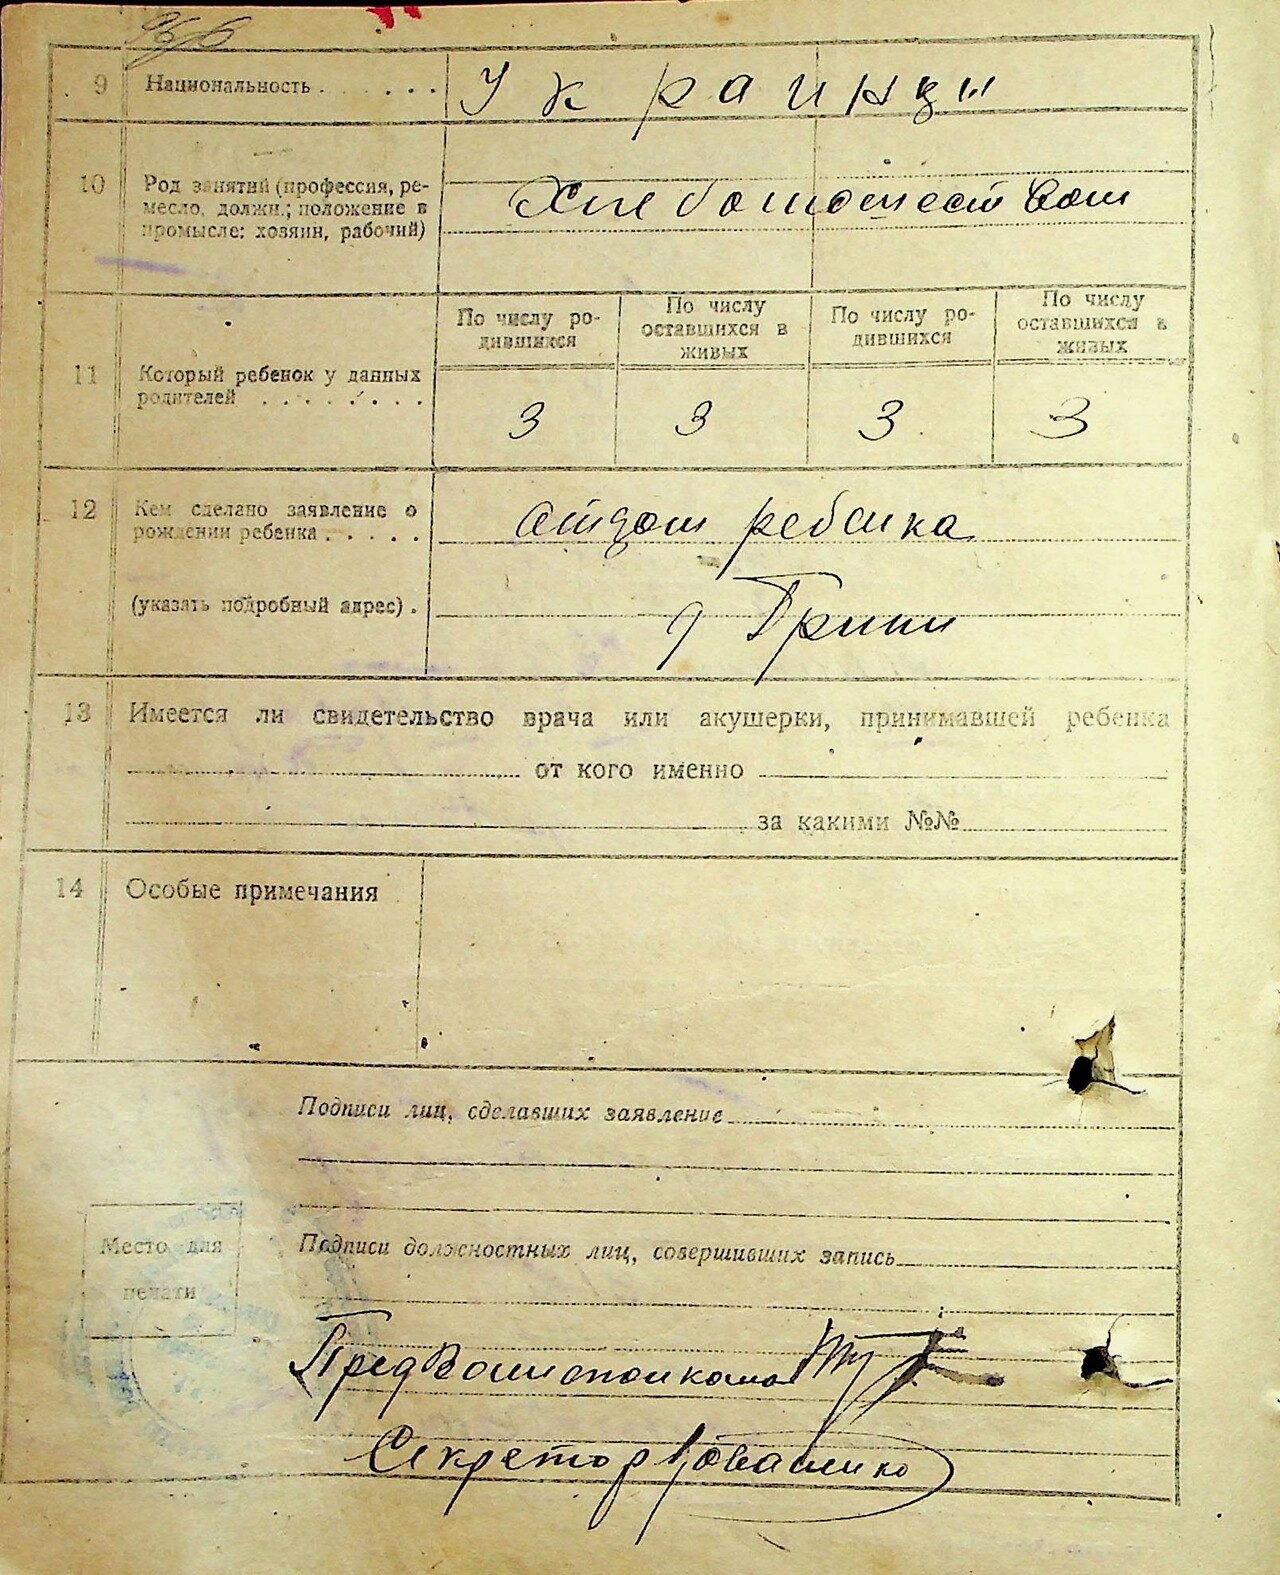 9 Национальность . . . . . . Украинцы
10 Род занятий (профессия, ре-
месло, должн.; положение в
промысле: хозяин, рабочий)
Хлебопашеством
По числу ро-
дившихся
По числу
оставшихся в
живых
По числу ро-
дившихся
По числу
оставшихся в
живых
11 Который ребенок у данных
родителей . . . . . . . .
3 3 3 3
12 Кем сделано заявление о
рождении ребенка . . . . .
Отцом ребенка
(указать подробный адрес) .
13 Имеется ли свидетельство врача или акушерки, принимавшей ребенка
от кого именно
за какими №№
14 Особые примечания
Подписи лиц, сделавших заявление
Место для
печати
Подписи должностных лиц, совершивших запись
Пред Волисполкома
Секретар